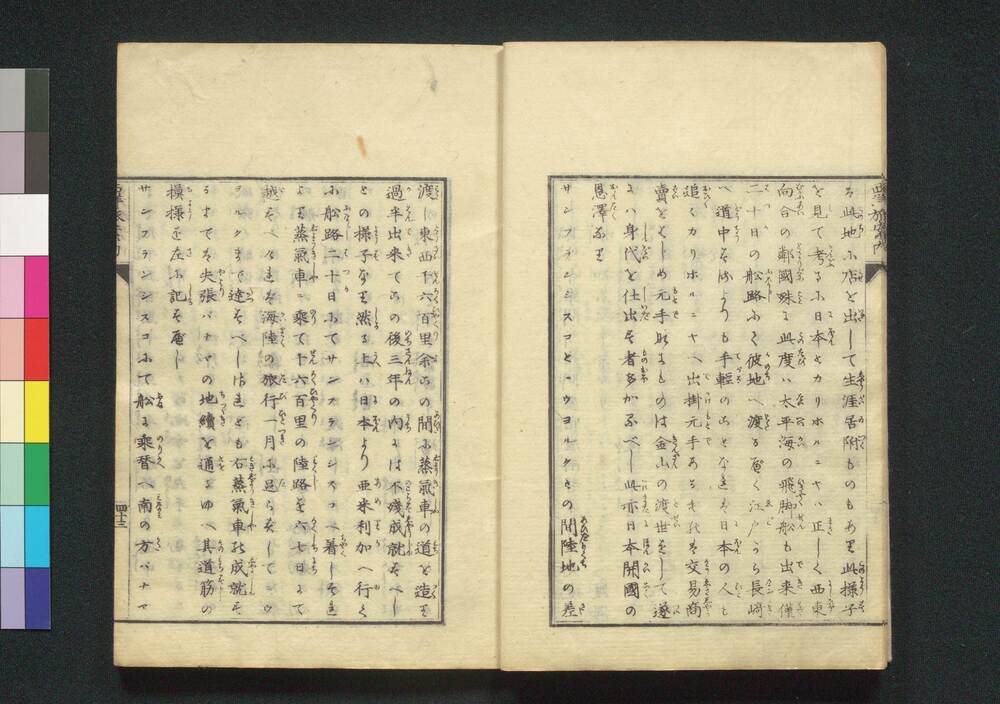 る此地に店を出して生涯居附ものもあり此様子
を見て考るに日本とカリホルニヤハ正しく西東
向合の鄰國殊に此度ハ太平海の飛脚船も出来僅
二十日の船路ふて彼地へ渡る
江戸から長崎
へ道中するよりも手輕のことなれば日本の人も
追々カリホルニヤへ出掛元手あるものは交易商
賣をはじめ元手なきものは金山の渡世をして遂
にハ身代を仕出す者多かるべし此亦日本開國の
恩澤なり
サンフランシスコとニウヨルクとの間陸地の差
渡し東西千六百里余この間に蒸氣車の道を造り
過半出来てこの後三年の内には不残成就すべし
との様子なり然る上ハ日本より亜米利加へ行く
に船路二十日ふてサンフランシスコへ着しそれ
より蒸氣車に乗て千六百里の陸路を六七日にて
越すべければ海陸の旅行一月に足らずしてニウ
ヨルクまで達すべしけれども右蒸氣車の成就す
るまでは矢張パナマの地續を通るゆへ其道筋の
模様を左に記す
サンフランシスコにて船に乗替へ南の方パナマ
四十三